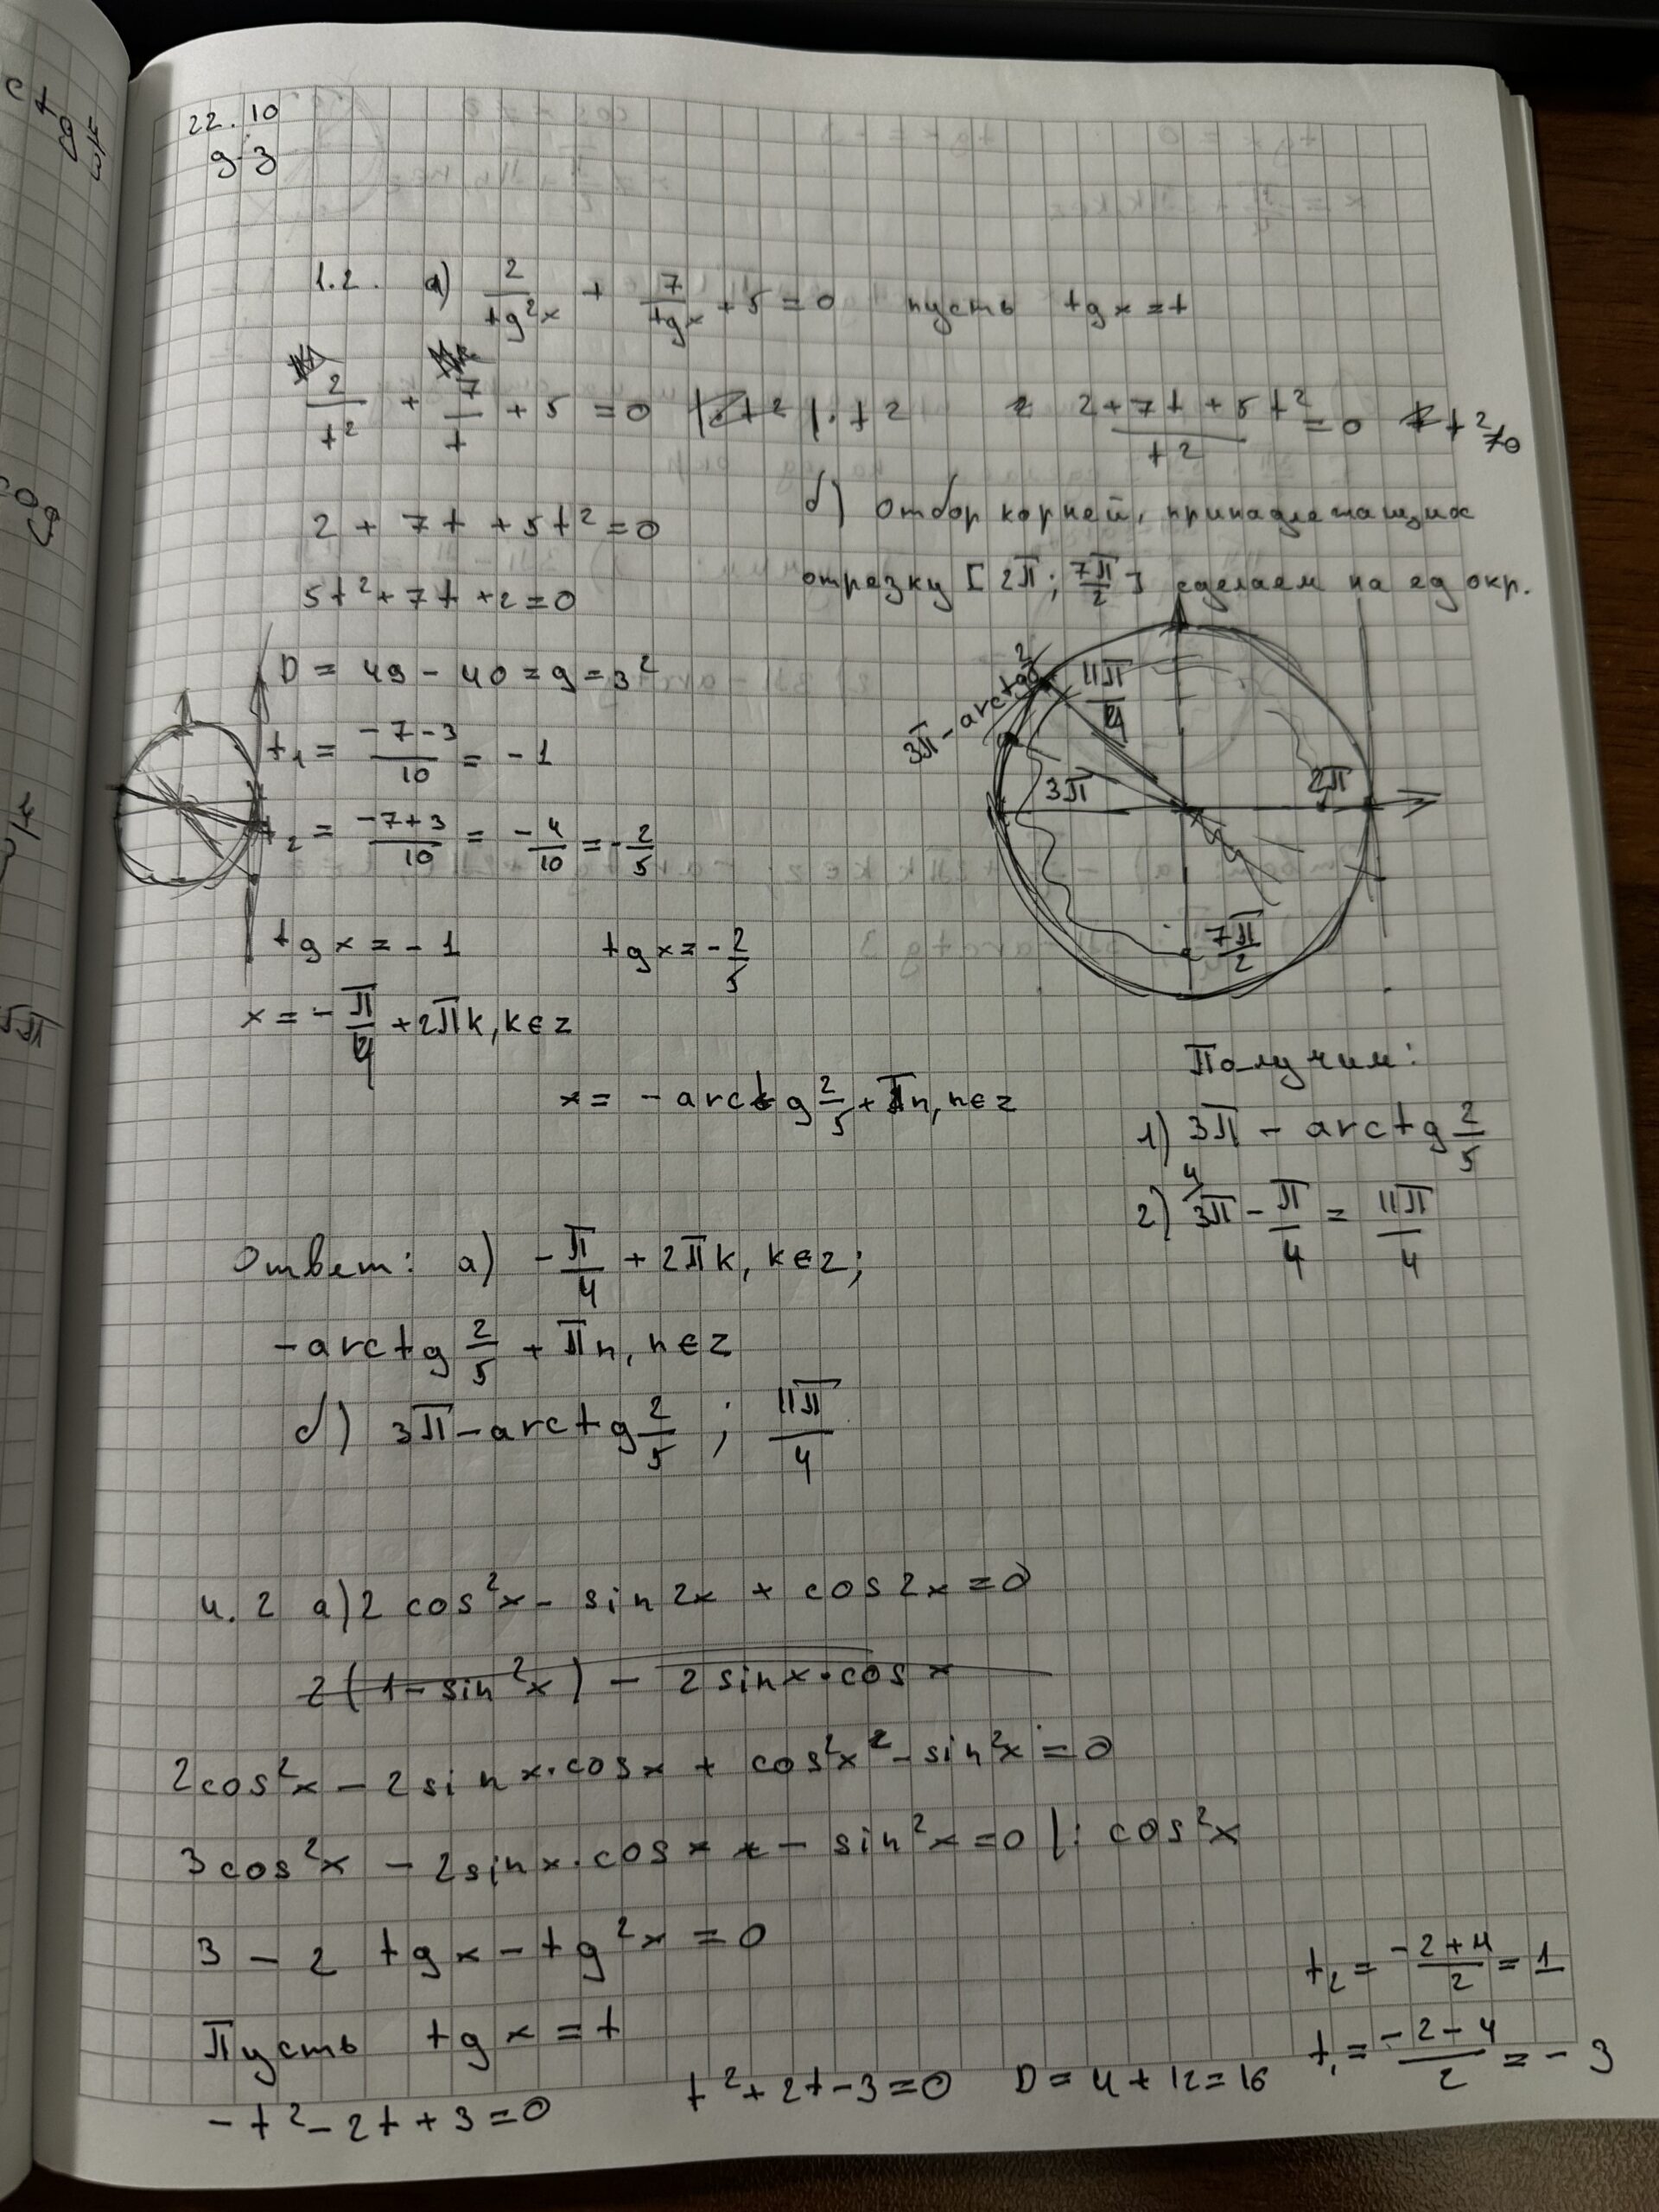 22.10
д-з
1.2. а) 2/tg²x + 7/tgx + 5 = 0 пусть tg x = t
2/t² + 7/t + 5 = 0 |· t² 2+7t+5t²/t² = 0 t² ≠ 0
2 + 7t + 5t² = 0
5t² + 7t + 2 = 0
D = 49 - 40 = 9 = 3²
t₁ = -7-3/10 = -1
t₂ = -7+3/10 = -4/10 = -2/5
tg x = -1 tg x = -2/5
x = -π/4 + 2πk, k∈z
x = - arctg 2/5 + πn, n∈z
б) Отбор корней, принадлежащих
отрезку [2π; 7π/2] сделаем на ед окр.
3π - arctg 2/5
11π/4
3π
2π
7π/2
Получим:
1) 3π - arctg 2/5
2) 3π - π/4 = 11π/4
Ответ: а) -π/4 + 2πk, k∈z;
-arctg 2/5 + πn, n∈z
б) 3π - arctg 2/5 ; 11π/4
4.2 а) 2 cos²x - sin 2x + cos 2x = 0
2(1 - sin²x) - 2 sinx·cos x
2cos²x - 2 sin x·cosx + cos²x - sin²x = 0
3cos²x - 2sinx·cos x - sin²x = 0 |: cos²x
3 - 2 tg x - tg²x = 0
Пусть tg x = t
-t² - 2t + 3 = 0
t² + 2t - 3 = 0 D = 4 + 12 = 16
t₁ = -2-4/2 = -3
t₂ = -2+4/2 = 1